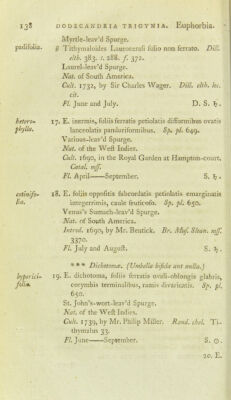 138 DODECANDRIA TRIGYNIA. Euphorbia.
Myrtle-leav'd Spurge.
padifolia. β Tithymaloides Laurocerasi folio non serrato. Dill.
elth. 383. t. 288. f. 372.
Laurel-leav'd Spurge.
Nat. of South America.
Cult. 1732, by Sir Charles Wager. Dill. elth. loc.
cit.
Fl. June and July. D. S. ♄.
hetero-
phylla. 17. E. inermis, foliis serratis petiolatis difformibus ovatis
lanceolatis panduriformibus. Sp. pl. 649.
Various-leav'd Spurge.
Nat. of the West Indies.
Cult. 1690, in the Royal Garden at Hampton-court.
Catal. mss.
Fl. April——September. S. ♄.
cotinifo-
lia. 18. E. foliis oppositis subcordatis petiolatis emarginatis
integerrimis, caule fruticoso. Sp. pl. 650.
Venus's Sumach-leav'd Spurge.
Nat. of South America.
Introd. 1690, by Mr. Bentick. Br. Mus. Sloan. mss.
3370.
Fl. July and August. S. ♄.
*** Dichotomæ. (Umbella bifida aut nulla.)
hyperici-
folia. 19. E. dichotoma, foliis serratis ovali-oblongis glabris,
corymbis terminalibus, ramis divaricatis. Sp. pl.
650.
St. John's-wort-leav'd Spurge.
Nat. of the West Indies.
Cult. 1739, by Mr. Philip Miller. Rand. chel. Ti-
thymalus 33.
Fl. June——September. S. ☉.
20. E.